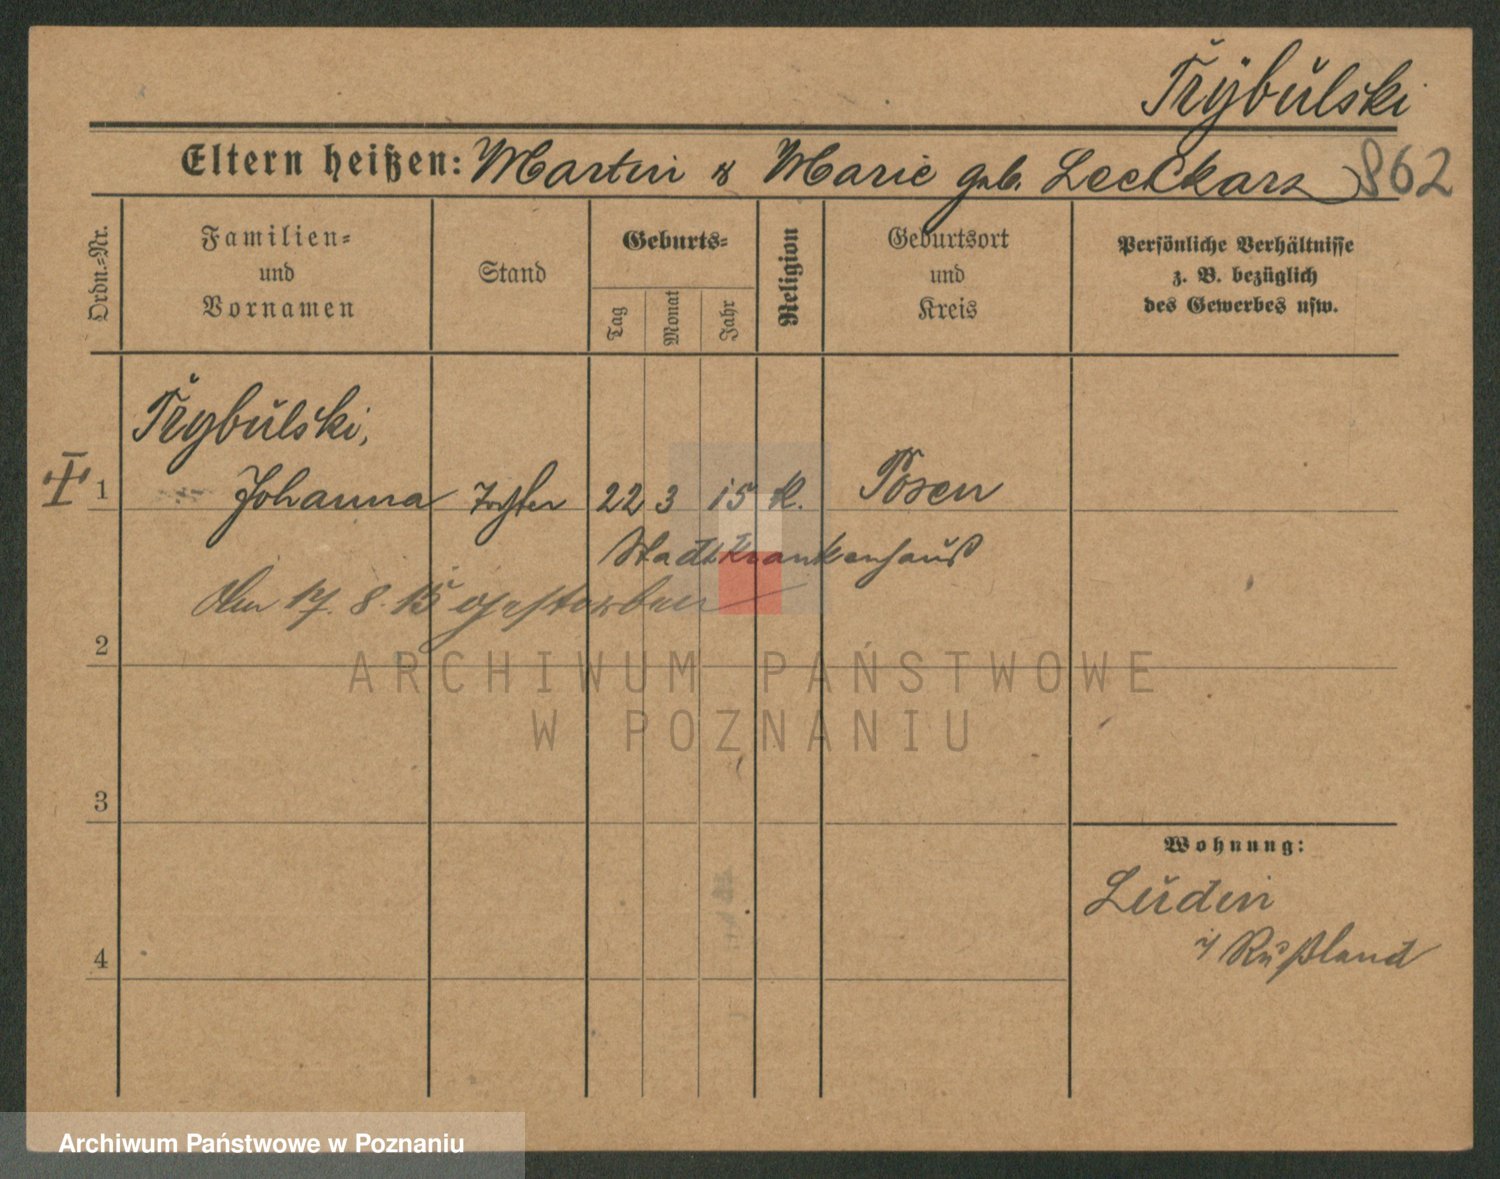 Trybulski
Eltern heißen: Martin & Marie geb. Leckkarz 862
Ordn.-Nr.
Familien-
und
Vornamen
Stand
Geburts-
Tag
Monat
Jahr
Religion
Geburtsort
und
Kreis
Persönliche Verhältnisse
z. B. bezüglich
des Gewerbes usw.
Trybulski,
1 Johanna 22 3 15 K. Posen
Stadtkrankenhaus
Am 17. 8. 15 gestorben
2
ARCHIWUM PAŃSTWOWE
W POZNANIU
3
Wohnung:
Ludin
i/ Rußland
4
Archiwum Państwowe w Poznaniu